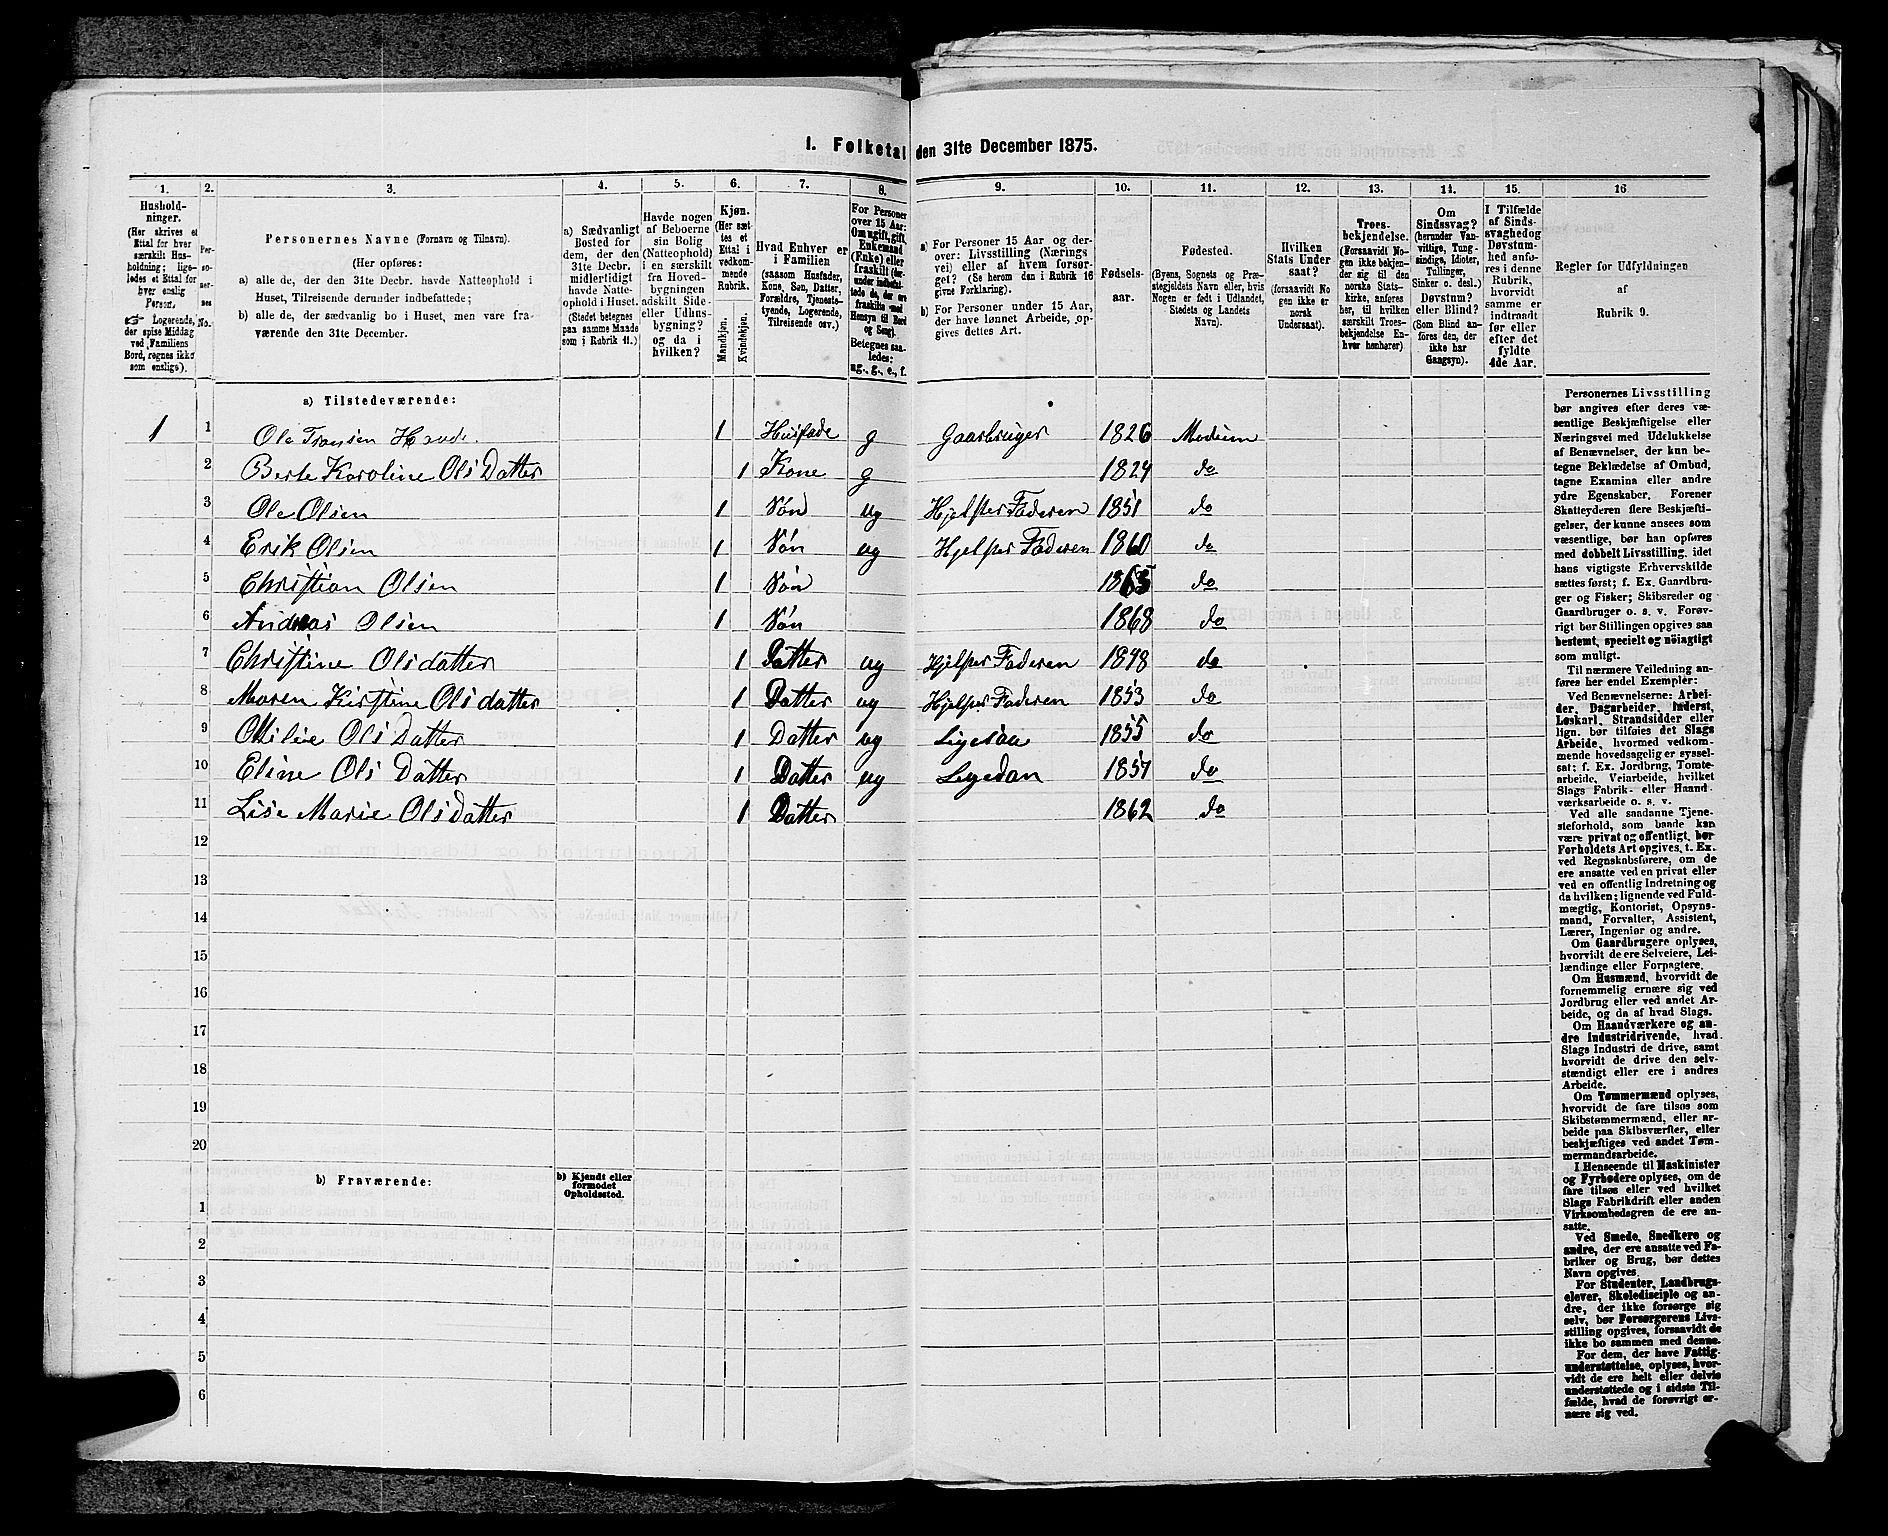 1. Folketal den 31te December 1875.
1. 2. 3. 4. 5. 6. 7. 8. 9. 10. 11. 12. 13. 14. 15. 16
Hushold-
ninger.
(Her skrives et
Ettal for hver
særskilt Hus-
holdning; lige-
ledes et Ettal for
hver enslig
Person.
☞ Logerende,
der spise Middag
ved Familiens
Bord, regnes ikke
som enslige).
Per-
so-
ner-
nes
No.
Personernes Navne (Fornavn og Tilnavn).
(Her opføres:
a) alle de, der den 31te Decbr. havde Natteophold i
Huset, Tilreisende derunder indbefattede;
b) alle de, der sædvanlig bo i Huset, men vare fra-
værende den 31te December.
a) Sædvanligt
Bosted for
dem, der den
31te Decbr.
midlerligt
havde Natte-
ophold i Huset.
(Stedet betegnes
paa samme Maade
som i Rubrik 11.)
Havde nogen
af Beboerne
sin Bolig
(Natteophold)
i en særskilt
fra Hoved-
bygningen
adskilt Side-
eller Udhus-
bygning?
og da i
hvilken?
Kjøn.
(Her sæt-
tes et
Ettal i
vedkom-
mende
Rubrik.
Mandkjøn.
Kvindekjøn.
Hvad Enhver er
i Familien
(saasom Husfader,
Kone, Søn, Datter,
Forældre, Tjeneste-
tyende, Logerende,
Tilreisende osv.)
For Personer
over 15 Aar:
Om ugift, gift,
Enkemand
(Enke) eller
fraskilt
Hensyn til Bord
og Seng).
Betegnes saa-
ledes:
ug., g., e., f.
a) For Personer 15 Aar og der-
over: Livsstilling (Nærings
vei) eller af hvem forsør-
get? (Se herom den i Rubrik 16
givne Forklaring).
b) For Personer under 15 Aar,
der have lønnet Arbeide, op-
gives dettes Art.
Fødsels-
aar.
Fødested.
(Byens, Sognets og Præ-
stegjeldets Navn eller, hvis
Nogen er født i Udlandet,
Stedets og Landets
Navn).
Hvilken
Stats Under
saat?
(forsaavidt No
gen ikke er
norsk
Undersaat).
Troes-
bekjendelse.
(Forsaavidt No-
gen ikke bekjen-
der sig til den
norske Stats-
kirke, anføres
her, til hvilken
særskilt Troes-
bekjendelse En-
hver henhører)
Om
Sindssvag?
(herunder Van-
vittige, Tung-
sindige, Idioter,
Tullinger,
Sinker o. desl.)
Døvstum?
eller Blind?
(Som Blind an-
føres den, der
ikke har
Gangsyn).
I Tilfælde
af Sinds-
svaghed og
Døvstum-
hed anfø-
res i denne
Rubrik,
hvorvidt
samme er
indtraadt
før eller
efter det
fyldte
4de Aar.
Regler for Udfyldningen
af
Rubrik 9.
a) Tilstedeværende:
1 1 Ole 1 Husfade g Gaarbruger 1826 Modum
2 Berte Karoline Ols Datter 1 Kone g 1824 do
3 Ole Olsen 1 Søn ug Hjelper Faderen 1851 do
4 Erik Olsen 1 Søn ug Hjelper Faderen 1860 do
5 Christian Olsen 1 Søn 1865 do
6 Andreas Olsen 1 Søn 1868 do
7 Christine Olsdatter 1 Datter ug Hjelper Faderen 1848 do
8 Maren Kirstine Olsdatter 1 Datter ug Hjelper Faderen 1853 do
9 Ols Datter 1 Datter ug 1855 do
10 Eline Ols Datter 1 Datter ug Ligedan 1857 do
11 Lise Marie Ols Datter 1 Datter 1862 do
12
13
14
15
16
17
18
19
20
b) Fraværende:
b) Kjendt eller
formodet
Opholdssted.
1
2
3
4
5
6
Personernes Livsstilling
bør angives efter deres væ-
sentlige Beskjæftigelse eller
Næringsvei med Udelukkelse
af Benævnelser, der kun be-
tegne Beklædelse af Ombud,
tagne Examina eller andre
ydre Egenskaber. Forener
Skatteyderen flere Beskjæfti-
gelser, der kunne ansees som
væsentlige, bør han opføres
med dobbelt Livsstilling, idet
hans vigtigste Erhvervskilde
sættes først; f. Ex. Gaardbru-
ger og Fisker; Skibsreder og
Gaardbruger o. s. v. Forøv-
rigt bør Stillingen opgives saa
bestemt, specielt og nøiagtigt
som muligt.
Til nærmere Veiledning an-
føres her endel Exempler:
Ved Benævnelserne: Arbei-
der, Dagarbeider, Inderst,
Løskarl, Strandsidder eller
lign. bør tilføies det Slags
Arbeide, hvormed vedkom-
mende hovedsagelig er syssel-
sat; f. Ex. Jordbrug, Tomte-
arbeide, Veiarbeide, hvilket
Slags Fabrik- eller Haand
værksarbeide o. s. v.
Ved alle saadanne Tjene-
steforhold, som baade kan
være privat og offentligt, bør
Forholdets Art opgives, t. Ex.
ved Regnskabsførere, om de
ere ansatte ved en privat eller
ved en offentlig Indretning og
da hvilken; lignende ved Fuld-
mægtig, Kontorist, Opsyns-
mand, Forvalter, Assistent,
Lærer, Ingeniør og andre.
Om Gaardbrugere oplyses,
hvorvidt de ere Selveiere, Lei-
lændinge eller Forpagtere.
Om Husmænd, hvorvidt de
fornemmelig ernære sig ved
Jordbrug eller ved andet Ar-
beide, og da af hvad Slags.
Om Haandværkere og an-
dre Industridrivende, hvad
Slags Industri de drive, samt
hvorvidt de drive den selv-
stændigt eller ere i andres
Arbeide.
Om Tømmermænd oplyses,
hvorvidt de fare tilsøs som
Skibstømmermænd, eller ar-
beide paa Skibsværfter, eller
beskjæftiges ved andet Tøm-
mermandsarbeide.
I Henseende til Maskinister
og Fyrbødere oplyses, om de
fare tilsøs eller ved hvilket
Slags Fabrikdrift eller anden
Virksomhedsgren de ere an-
satte.
Ved Smede, Snedkere og
andre, der ere ansatte ved Fa-
briker og Brug, bør dettes
Navn opgives.
For Studenter, Landbrugs-
elever, Skoledisciple og an-
dre, der ikke forsørge sig
selv, bør Forsørgerens Livs-
stilling opgives, forsaavidt de
ikke bo sammen med denne.
For dem, der have Fattig-
understøttelse, oplyses, hvor-
vidt de ere helt eller delvis
understøttede og i sidste Til-
fælde, hvad de forøvrigt er-
nære sig ved.